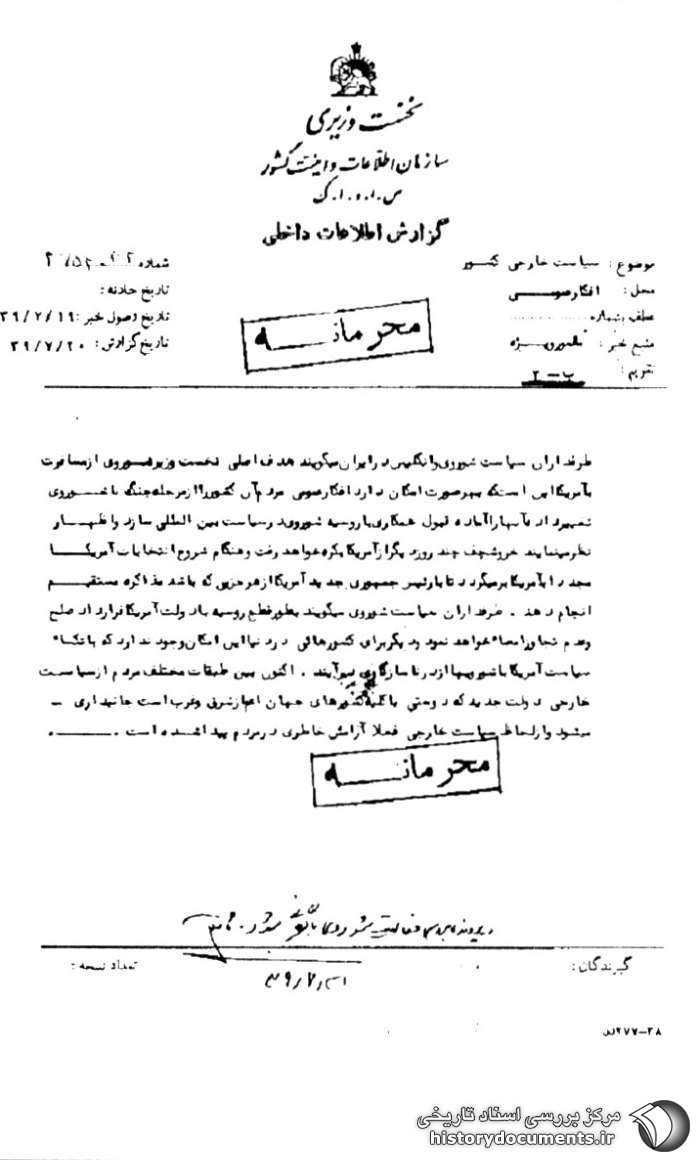 نخست وزیری
سازمان اطلاعات و امنیت کشور
س.ا.و.ا.ک
گزارش اطلاعات داخلی
موضوع: سیاست خارجی کشور
محل: افکار عمومی
عطف بشماره
منبع خبر: مامور ویژه
تقویم: ب-۲
شماره
تاریخ حادثه:
تاریخ وصول خبر: ۳۹/۷/۱۹
تاریخ گزارش: ۳۹/۷/۲۰
محرمانه
طرفداران سیاست شوروی و انگلیس در ایران میگویند هدف اصلی نخست وزیر شوروی از مسافرت
بآمریکا این است که بهر صورت امکان دارد افکار عمومی مردم آن کشور را از مرحله جنگ با شوروی
تغییر داده آنها را آماده قبول همکاری با روسیه شوروی در سیاست بین المللی سازد و اظهار
نظر مینمایند خروشچف چند روز دیگر از آمریکا بکوبا خواهد رفت و هنگام شروع انتخابات آمریکا
مجددا بآمریکا برمیگردد تا با رئیس جمهوری جدید آمریکا از هر حزبی که باشد مذاکره مستقیم
انجام دهد . طرفداران سیاست شوروی میگویند بطور قطع روسیه با دولت آمریکا قرارداد صلح
وعدم تجاوز امضاء خواهد نمود و دیگر برای کشورهائی در دنیا این امکان وجود ندارد که باتکاء
سیاست آمریکا با شورویها از در ناسازگاری برآیند . اکنون بین طبقات مختلف مردم از سیاست
خارجی دولت جدید که دوستی با کلیه کشورهای جهان اعم از شرق و غرب است جانبداری -
میشود و از لحاظ سیاست خارجی فعلا آرامش خاطری در مردم پیدا شده است .
محرمانه
گیرندگان:
تعداد نسخه:
۲۷۷-۲۸
مرکز بررسی اسناد تاریخی
historydocuments.ir